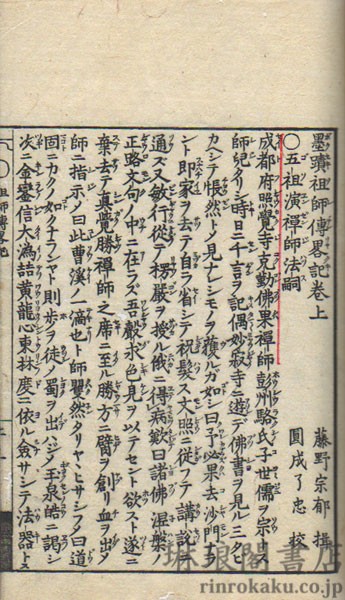 墨蹟祖師傳畧記卷上
藤野宗郁 撰
圓成了忠 校
〇五祖演禪師法嗣
成都府照覺寺克勤佛果禪師彭州駱氏子世儒ヲ宗トス
師兒タリシ時日ニ千言ヲ記ス偶妙寂寺ニ遊テ佛書ヲ見三タヒ
カヘシテ悵然トノ見ナシモノヲ獲ルカ如シ曰予必果去沙門ト
ント即家ヲ去テ自ラ省シテ祝髮ス文照ニ從フテ講説
通ス又敏行從テ楞嚴ヲ授ル俄ニ得病歎曰諸佛涅槃
正路文句ノ中ニ在ラズ吾聲求色見ヲ以テセント欲スト遂ニ
棄去テ真覺勝禪師之席ニ至ル勝方ニ臂ヲ創リ血ヲ出ス
師ニ指示ノ曰此曹溪ノ一滴也ト師矍然タリヤヽヒサシフノ曰道
固ニカクノ如クナランヤト則歩ヲ徒ノ蜀ヲ出ハシメ玉泉皓ニ謁シ
次ニ金鑾信大潙喆黄龍心東林度ニ依ル僉サシテ法器トス
祖師傳畧記
琳琅閣書店
rinrokaku.co.jp